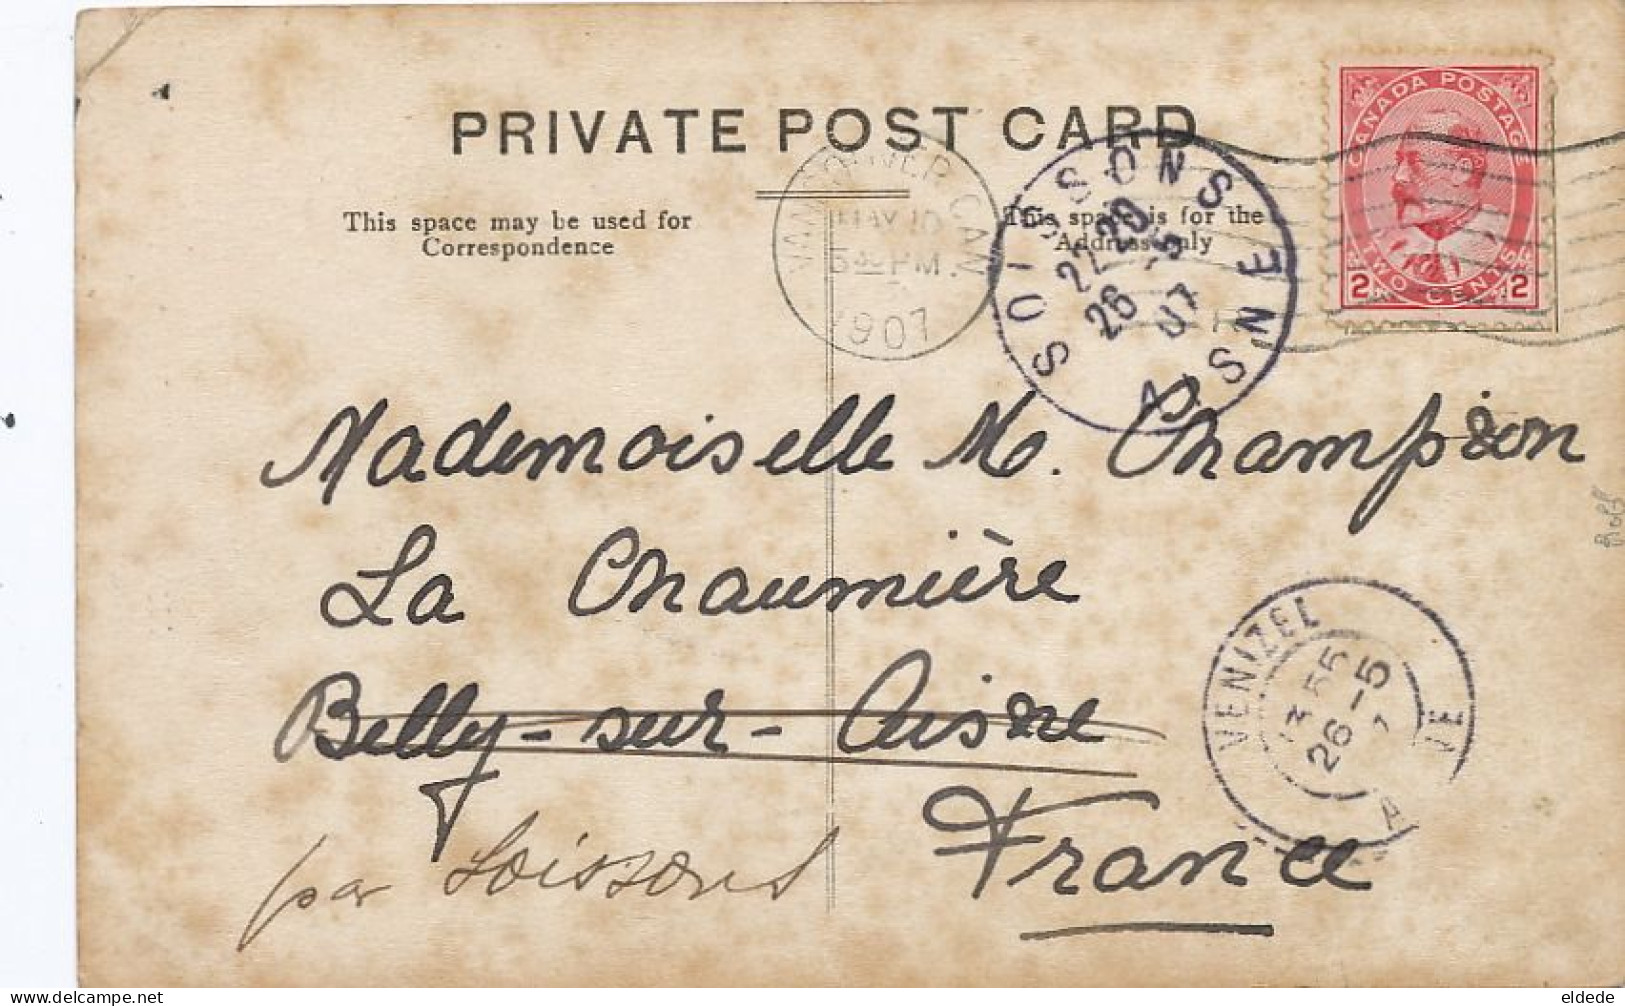 PRIVATE POST CARD
This space may be used for
Correspondence
This space is for the
Address only
VANCOUVER, CAN.
MAY 10
PM.
1907
SOISSONS AISNE
22 20
26 5
07
CANADA POSTAGE
2 TWO CENTS 2
Mademoiselle M. Champion
La Chaumière
Billy-sur-Aisne
par Soissons
France
VENIZEL
3 55
26 -5
Rolf
eldede